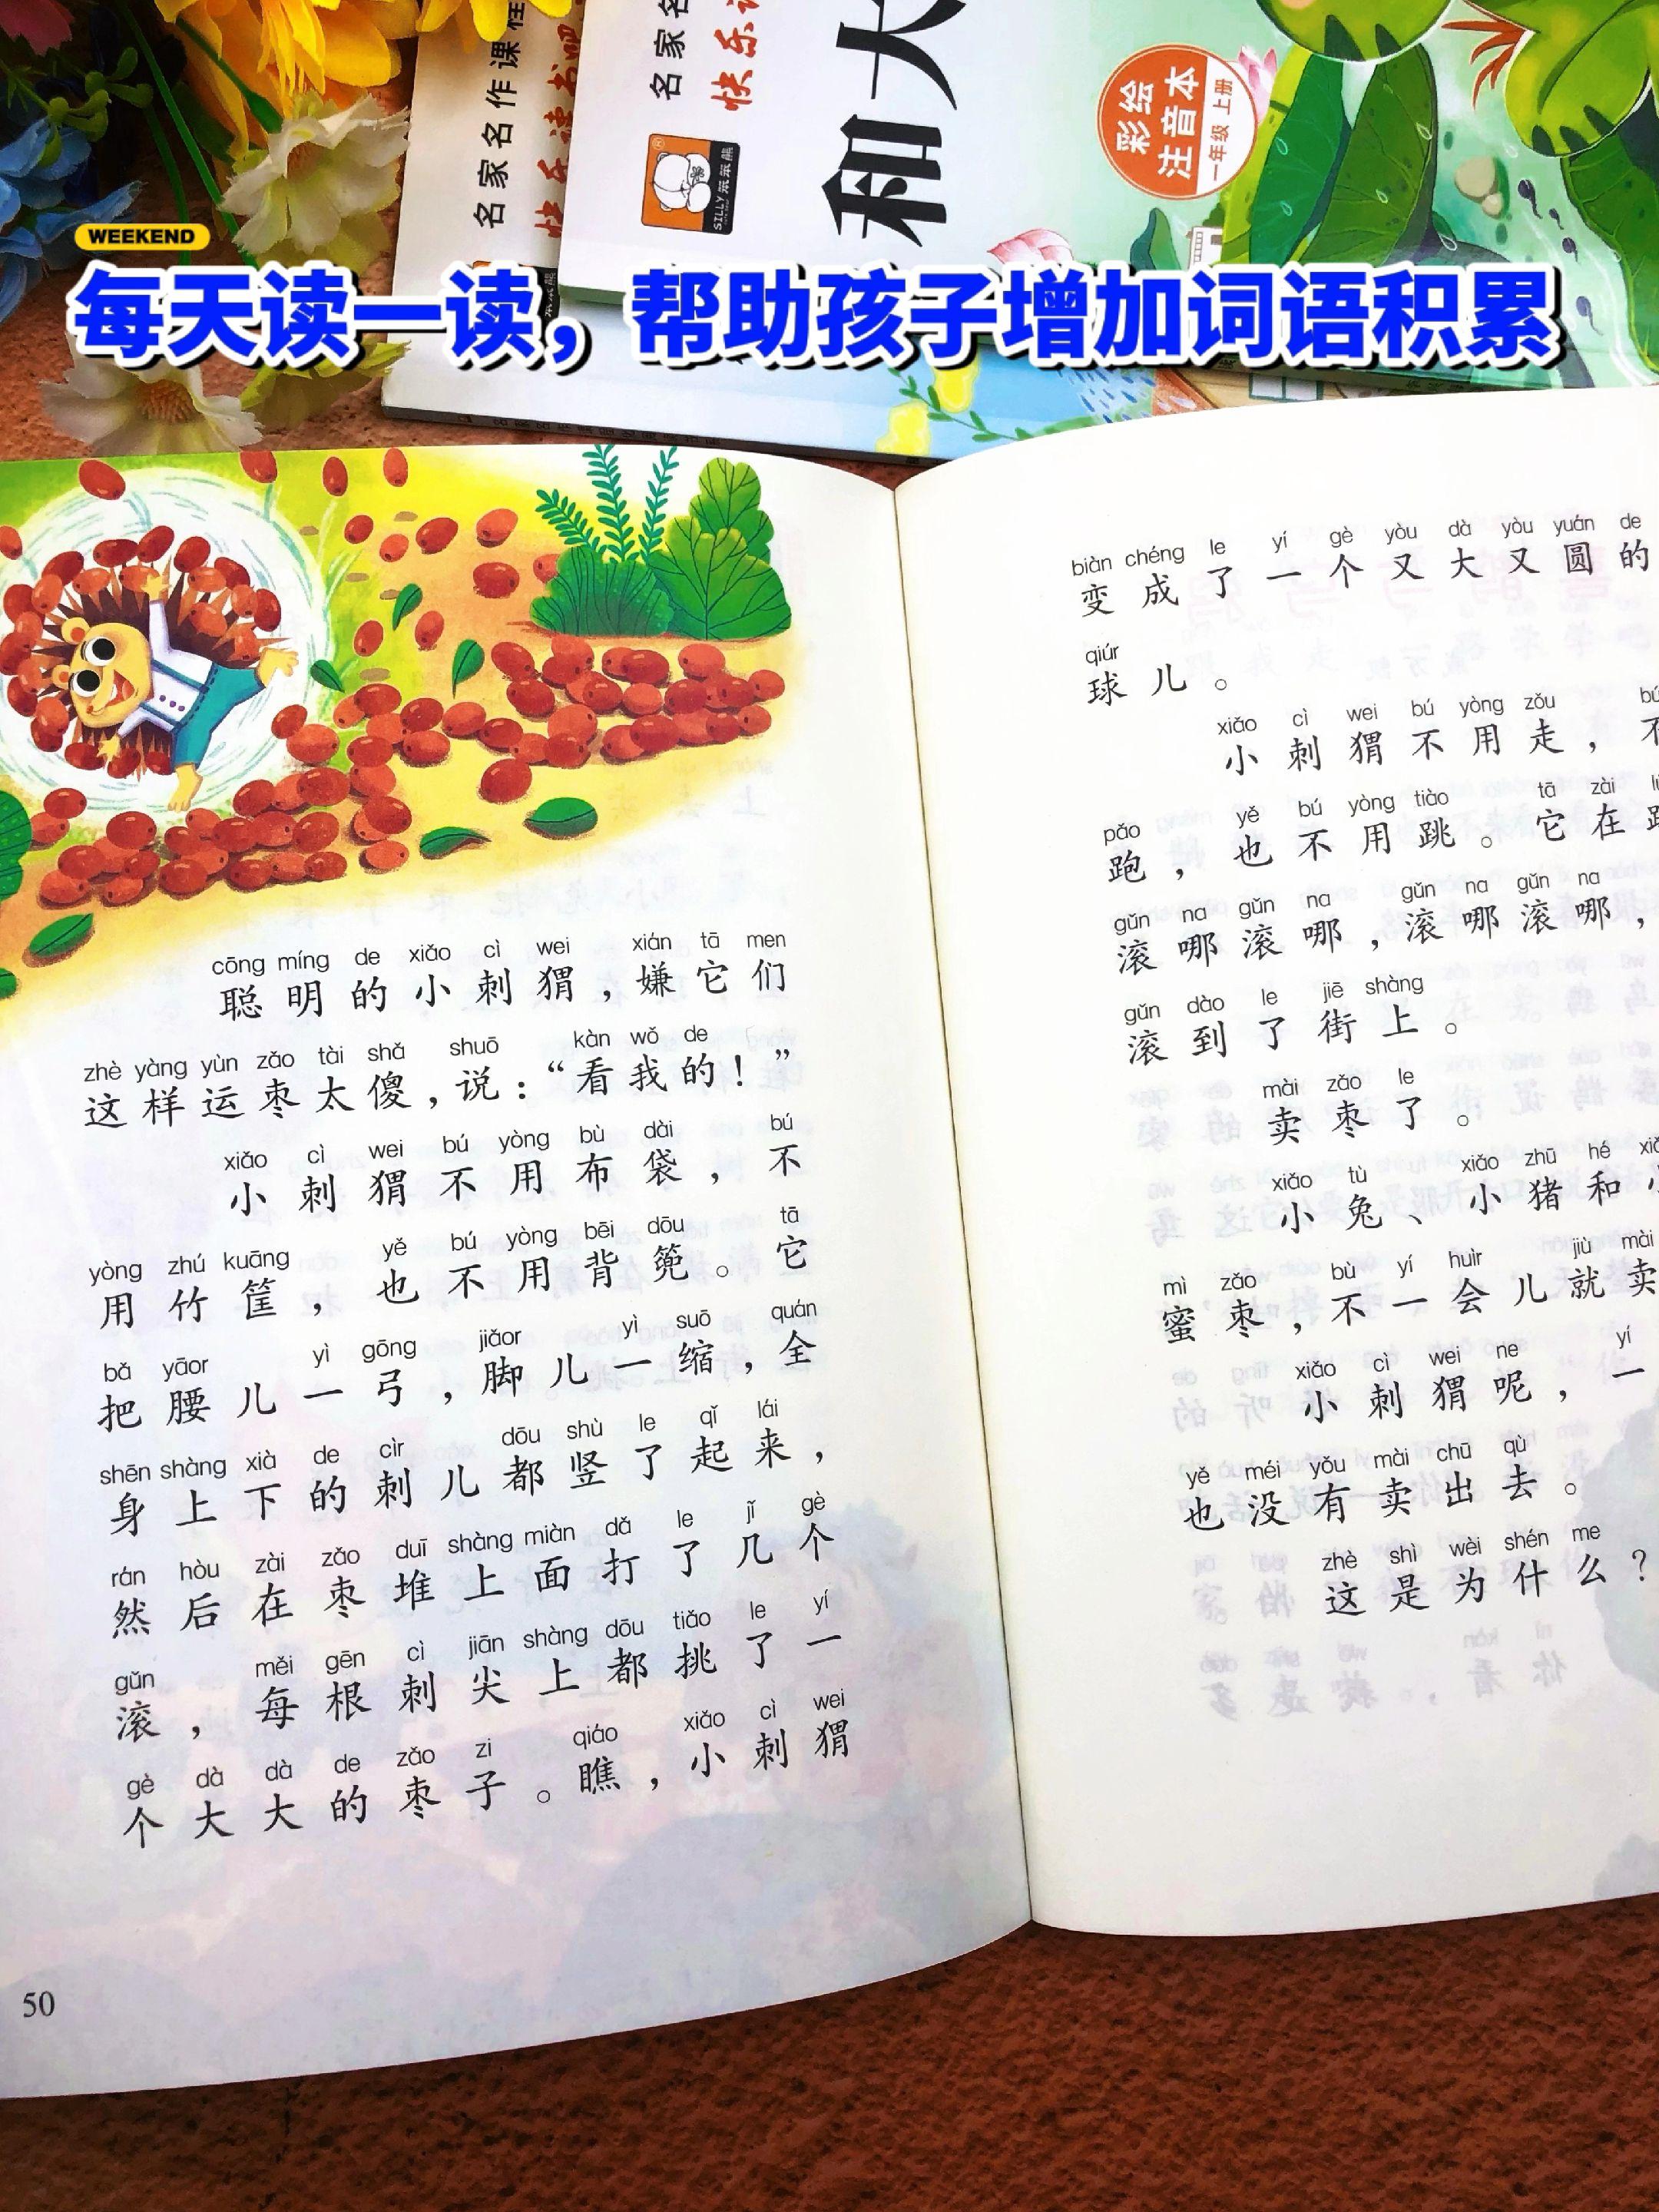 名家名作课程
快乐读书吧
名家名
快乐
和大
彩绘
注音本
一年级 上册
SILLY 笨笨熊
WEEKEND
每天读一读，帮助孩子增加词语积累
cōng míng de xiǎo cì wei xián tā men
聪明的小刺猬，嫌它们
zhè yàng yùn zǎo tài shǎ shuō kàn wǒ de
这样运枣太傻，说：“看我的！”
xiǎo cì wei bú yòng bù dài bú
小刺猬不用布袋，不
yòng zhú kuāng yě bú yòng bēi dōu tā
用竹筐，也不用背篼。它
bǎ yāor yì gōng jiǎor yì suō quán
把腰儿一弓，脚儿一缩，全
shēn shàng xià de cìr dōu shù le qǐ lái
身上下的刺儿都竖了起来，
rán hòu zài zǎo duī shàng miàn dǎ le jǐ gè
然后在枣堆上面打了几个
gǔn měi gēn cì jiān shàng dōu tiǎo le yí
滚，每根刺尖上都挑了一
gè dà dà de zǎo zi qiáo xiǎo cì wei
个大大的枣子。瞧，小刺猬
50
biàn chéng le yí gè yòu dà yòu yuán de
变成了一个又大又圆的
qiúr
球儿。
xiǎo cì wei bú yòng zǒu bú
小刺猬不用走，不
pǎo yě bú yòng tiào tā zài
跑，也不用跳。它在
gǔn na gǔn na gǔn na gǔn na
滚哪滚哪，滚哪滚哪，
gǔn dào le jiē shàng
滚到了街上。
mài zǎo le
卖枣了。
xiǎo tù xiǎo zhū hé
小兔、小猪和小
mì zǎo bù yí huìr jiù mài
蜜枣，不一会儿就卖
xiǎo cì wei ne yí
小刺猬呢，一
yě méi yǒu mài chū qù
也没有卖出去。
zhè shì wèi shén me
这是为什么？